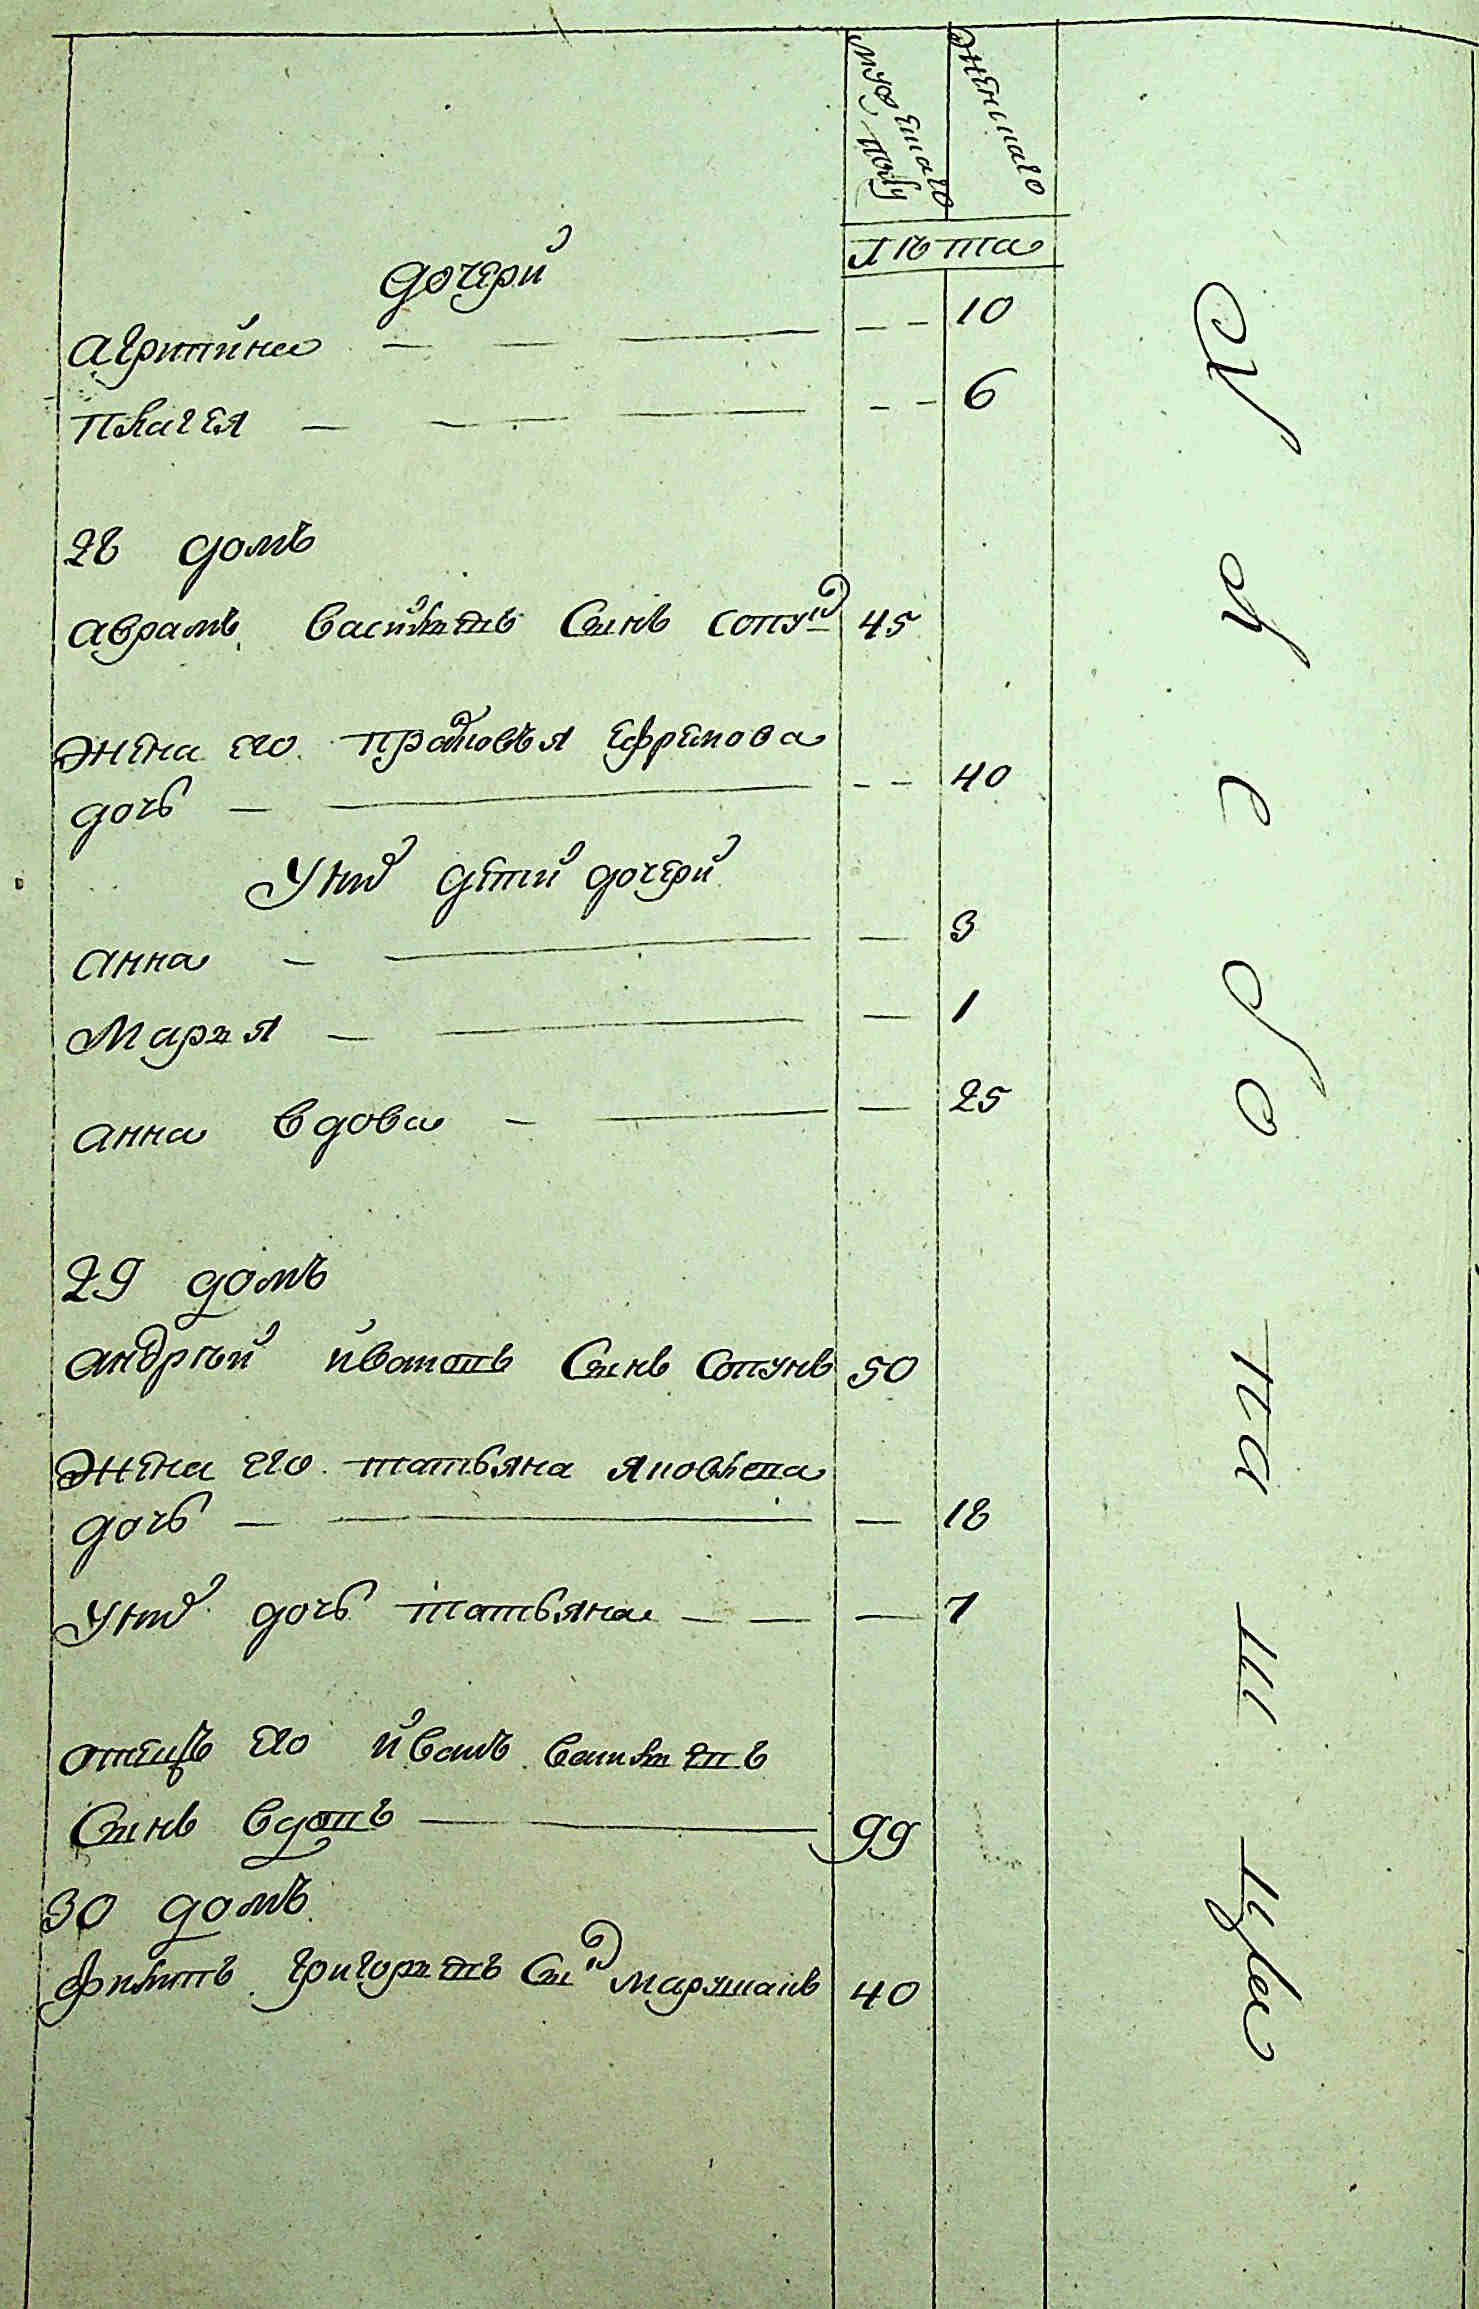 мужеска
полу
женскаго
лѣта
дочери
агрипина 10
пелагея 6
28 домъ
аврамъ васильевъ сынъ сопунъ 45
жена его прасковья ефремова
дочь 40
У нихъ дети дочери
анна 3
Марья 1
анна вдова 25
29 домъ
андрѣй ивановъ сынъ сопунъ 50
жена его татьяна яковлева
дочь 18
У нихъ дочь татьяна 7
отецъ его иванъ васильевъ
сынъ вдовъ 99
30 домъ
филипъ григорьевъ сынъ марушакъ 40